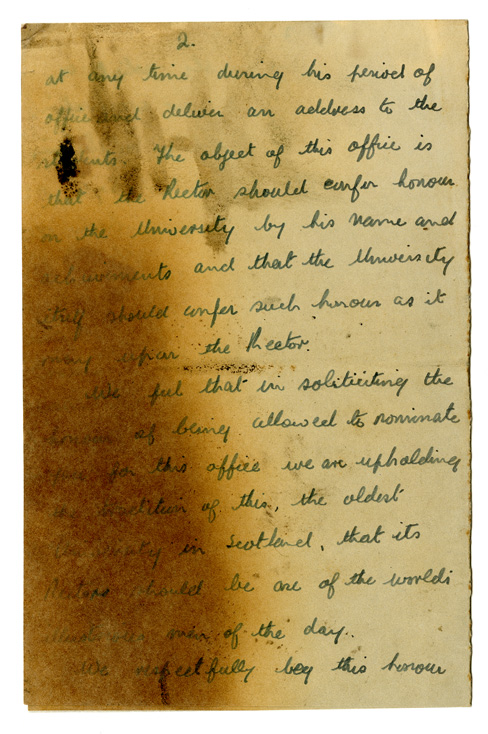 2.
at any time during his period of
office and deliver an address to the
students. The object of this office is
that the Rector should confer honour
on the University by his name and
achievements and that the University
should confer such honour as it
may upon the Rector.
We feel that in soliticiting the
honour of being allowed to nominate
you for this office we are upholding
the tradition of this, the oldest
University in Scotland, that its
Rectors should be one of the worlds
men of the day.
We respectfully beg this honour